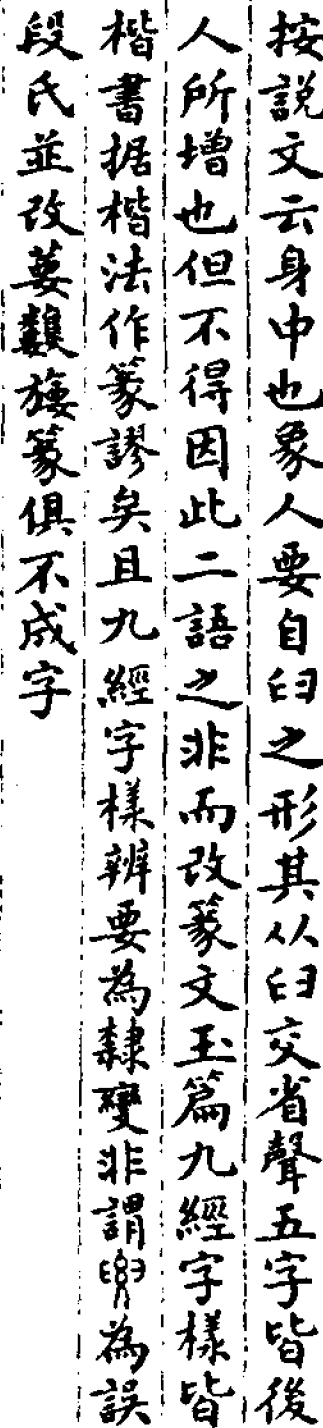 按説文云身中也象人要自𦥑之形其从𦥑交省聲五字皆後
人所增也但不得因此二語之非而改篆文玉篇九經字樣皆
楷書据楷法作篆謬矣且九經字樣辨要為隸變非謂為誤
段氏並改葽䙅篆俱不成字